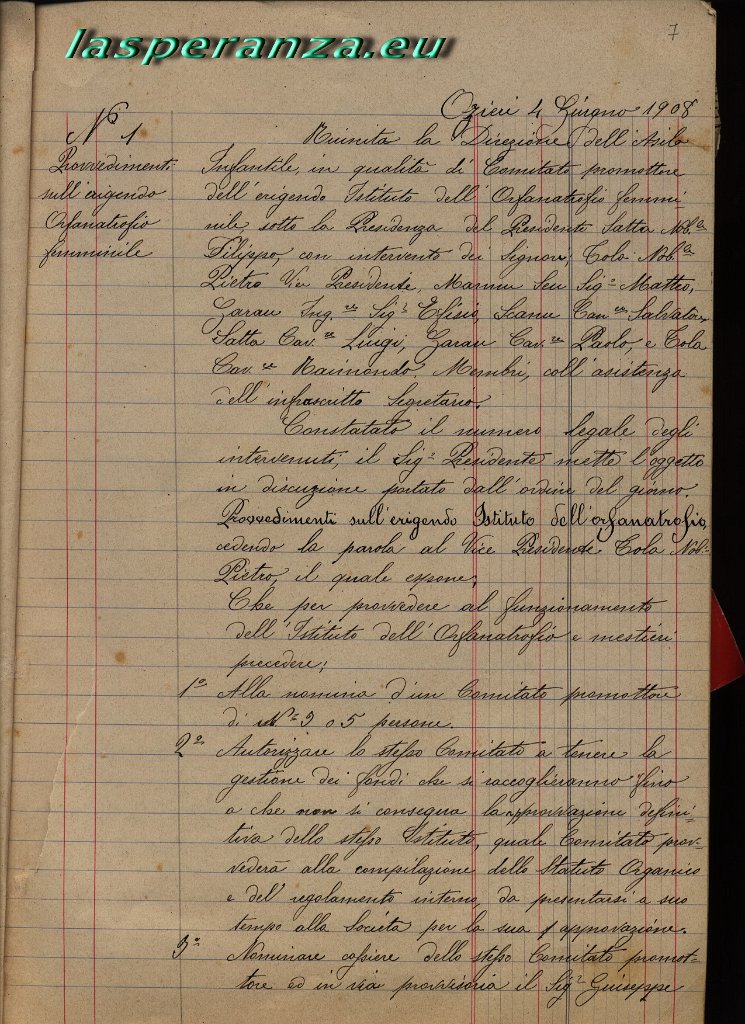 lasperanza.eu
7
Ozieri 4 Giugno 1908
N° 1
Provvedimenti
sull'erigendo
Orfanatrofio
femminile
Riunita la Direzione dell'Asilo
Infantile, in qualità di Comitato promottore
dell'erigendo Istituto dell'Orfanatrofio femmi
nile, sotto la Presidenza del Presidente Satta Nob.e
Filippo, con intervento dei Signori: Tola Nob.e
Pietro Vice Presidente, Mannu Seu Sig.r Matteo,
Garau Ing.re Sig.r Efisio, Scanu Can.co Salvatore,
Satta Cav.re Luigi, Garau Cav.re Paolo, e Tola
Cav.re Raimondo. Membri, coll'asistenza
dell'infrascritto Segretario.
Constatato il numero legale degli
intervenuti, il Sig.r Presidente mette l'oggetto
in discuzione portato dall'ordine del giorno.
Provvedimenti sull'erigendo Istituto dell'orfanatrofio,
cedendo la parola al Vice Presidente Tola Nob.e
Pietro, il quale espone;
Che per provvedere al funzionamento
dell'Istituto dell'Orfanatrofio e mestieri
precedere;
1° Alla nomina d'un Comitato promottore
di N° 3 o 5 persone.
2° Autorizzare lo stesso Comitato a tenere la
gestione dei fondi che si raccoglieranno fino
a che non si consegua la approvazione defini=
tiva dello stesso Istituto, quale Comitato prov=
vederà alla compilazione dello Statuto Organico
e del regolamento interno, da presentarsi a suo
tempo alla Società per la sua approvazione.
3° Nominare cassiere dello stesso Comitato promot=
tore ed in via provvisoria il Sig.r Guiseppe